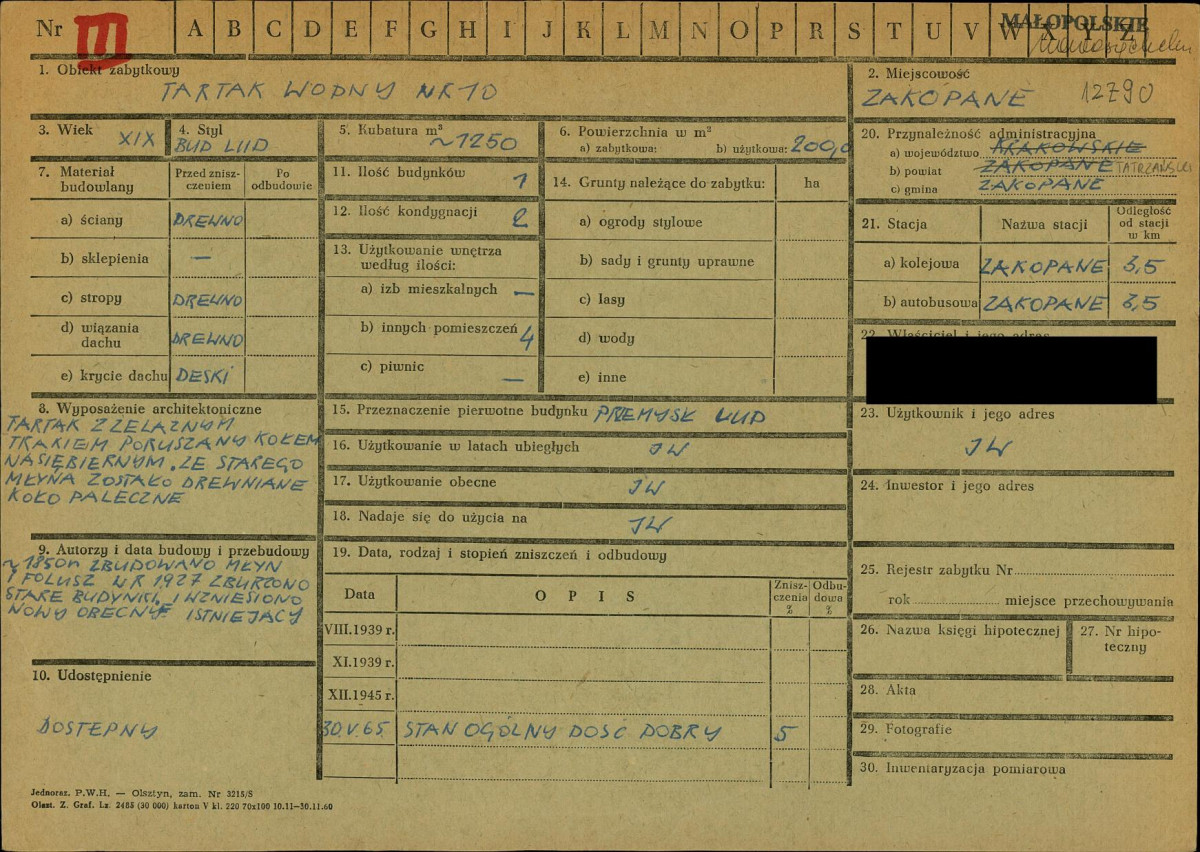 Nr III A B C D E F G H I J K L M N O P R S T U V W X Y Z MAŁOPOLSKIE
1. Obiekt zabytkowy
TARTAK WODNY NR 10
2. Miejscowość
ZAKOPANE 12790
3. Wiek XIX
4. Styl
BUD LUD
5. Kubatura m³
~1250
6. Powierzchnia w m²
a) zabytkowa: b) użytkowa: 200,0
7. Materiał budowlany
Przed zniszczeniem
Po odbudowie
a) ściany DREWNO
b) sklepienia —
c) stropy DREWNO
d) wiązania dachu DREWNO
e) krycie dachu DESKI
8. Wyposażenie architektoniczne
TARTAK Z ŻELAZNYM
TRAKIEM PORUSZANY KOŁEM
NASIĘBIERNYM. ZE STAREGO
MŁYNA ZOSTAŁO DREWNIANE
KOŁO PALECZNE
9. Autorzy i data budowy i przebudowy
~1850R ZBUDOWANO MŁYN
I FOLUSZ W R 1927 ZBURZONO
STARE BUDYNKI. I WZNIESIONO
NOWY OBECNY ISTNIEJĄCY
10. Udostępnienie
DOSTEPNY
11. Ilość budynków 1
12. Ilość kondygnacji 2
13. Użytkowanie wnętrza
według ilości:
a) izb mieszkalnych —
b) innych pomieszczeń 4
c) piwnic —
14. Grunty należące do zabytku: ha
a) ogrody stylowe
b) sady i grunty uprawne
c) lasy
d) wody
e) inne
15. Przeznaczenie pierwotne budynku PRZEMYSŁ LUD
16. Użytkowanie w latach ubiegłych JW
17. Użytkowanie obecne JW
18. Nadaje się do użycia na JW
19. Data, rodzaj i stopień zniszczeń i odbudowy
Data OPIS Zniszczenia % Odbudowa %
VIII.1939 r.
XI.1939 r.
XII.1945 r.
30.V.65 STAN OGÓLNY DOSĆ DOBRY 5
20. Przynależność administracyjna
a) województwo KRAKOWSKIE
b) powiat ZAKOPANE TATRZAŃSKI
c) gmina ZAKOPANE
21. Stacja Nazwa stacji Odległość od stacji w km
a) kolejowa ZAKOPANE 3,5
b) autobusowa ZAKOPANE 3,5
22. Właściciel i jego adres
23. Użytkownik i jego adres
JW
24. Inwestor i jego adres
25. Rejestr zabytku Nr
rok miejsce przechowywania
26. Nazwa księgi hipotecznej
27. Nr hipoteczny
28. Akta
29. Fotografie
30. Inwentaryzacja pomiarowa
Jednoraz. P.W.H. — Olsztyn, zam. Nr 3215/S
Olszt. Z. Graf. Lz. 2485 (30 000) karton V kl. 220 70x100 10.11—30.11.60